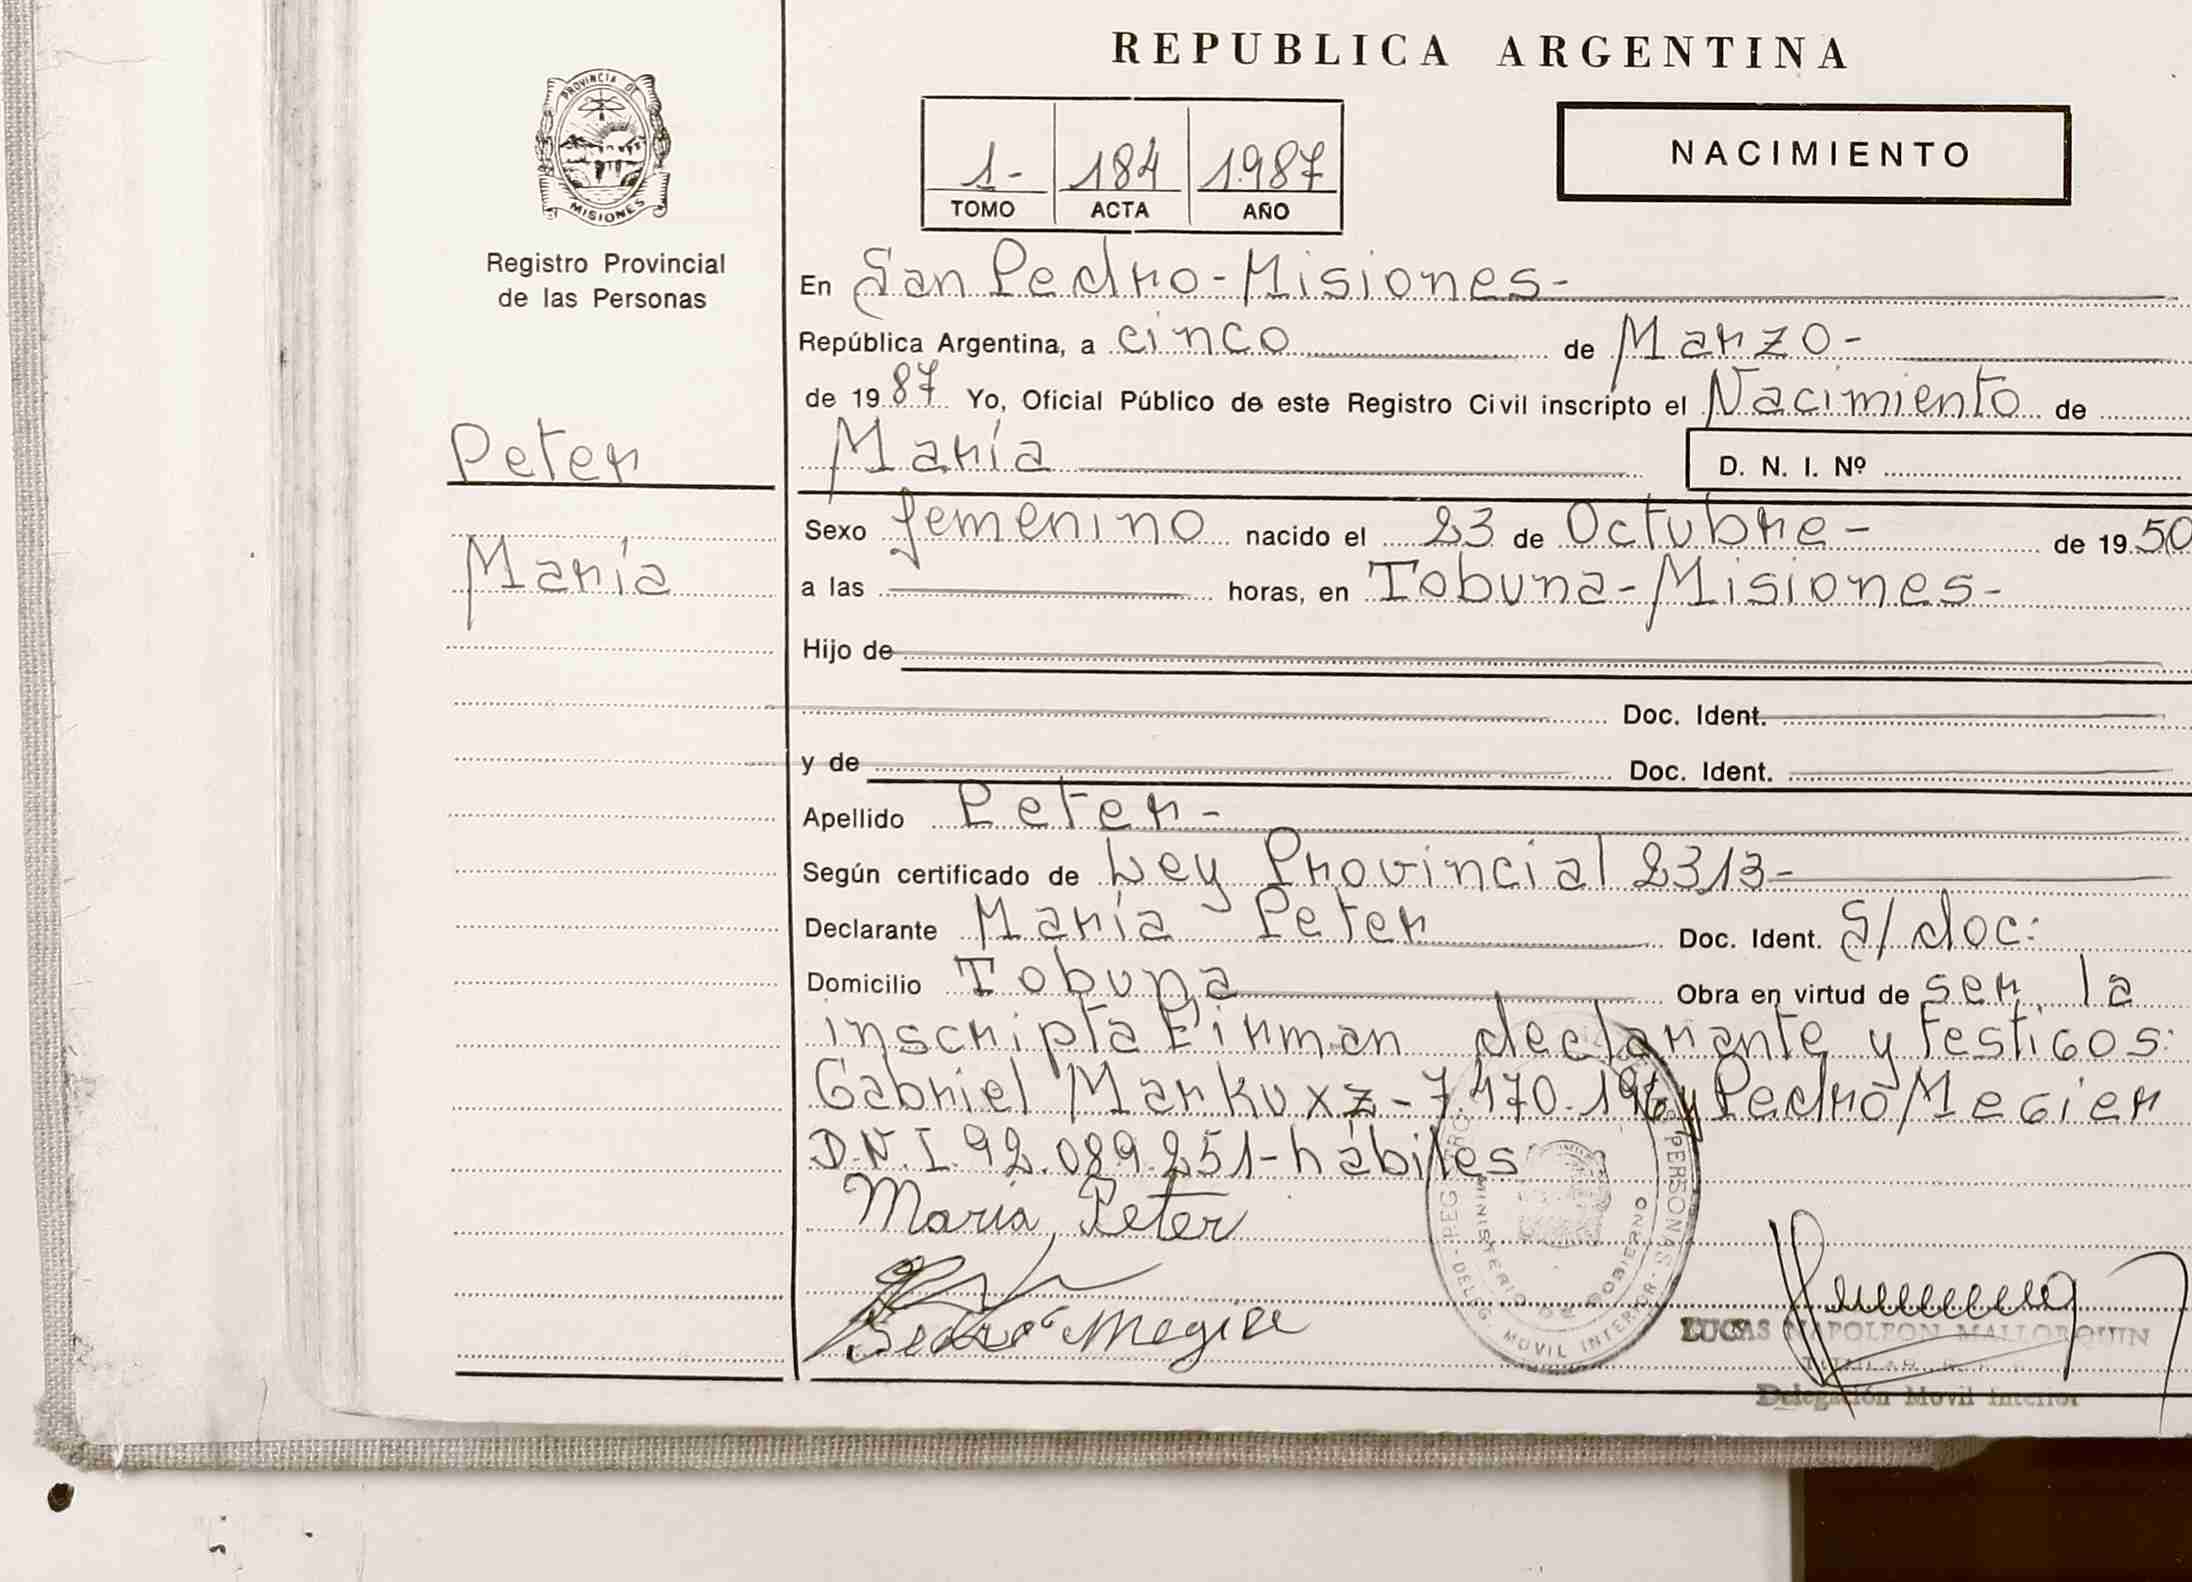 REPUBLICA ARGENTINA
PROVINCIA DE
MISIONES
Registro Provincial
de las Personas
1- 184 1987
TOMO ACTA AÑO
NACIMIENTO
En San Pedro-Misiones-
República Argentina, a cinco de Marzo-
de 19 87 Yo, Oficial Público de este Registro Civil inscripto el Nacimiento de
Peter
María
D. N. I. Nº
María
Sexo femenino nacido el 23 de Octubre- de 19 50
a las horas, en Tobuna-Misiones-
Hijo de
Doc. Ident.
y de Doc. Ident.
Apellido Peter-
Según certificado de Ley Provincial 2313-
Declarante María Peter Doc. Ident. S/doc:
Domicilio Tobuna Obra en virtud de ser la
inscripta Firman declarante y testigos:
Gabriel Markuxz-7.470. y Pedro Megier
D.N.I. 92.089.251-hábiles
María Peter
Pedro Megier
MINISTERIO DE GOBIERNO
PERSONAS
DELEG. MOVIL INTERIOR
LUCAS NAPOLEON MALLORQUIN
TITULAR
Delegación Movil Interior